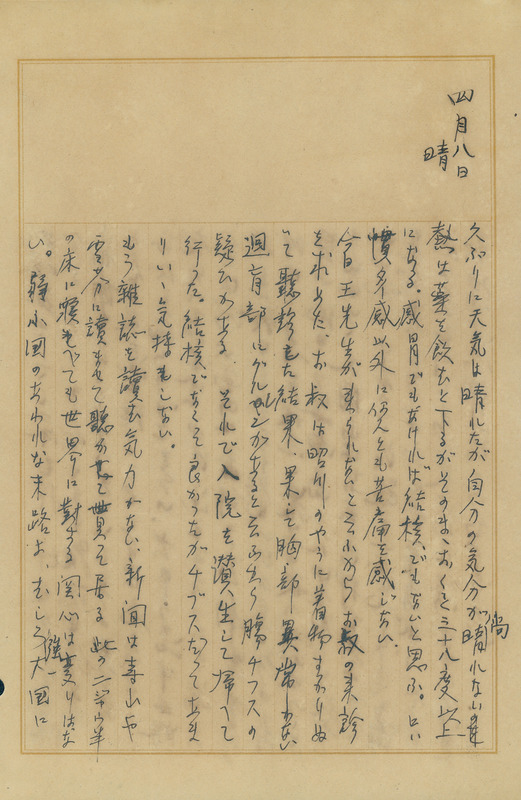 四月八日
晴
久ぶりに天気は晴れたが自分の気分が晴れない
尚
熱は薬を飲むと下るがそのまゝおくと三十八度以上
になる。感冒でもなければ結核でもないと思ふ。只い
感以外に何んとも苦痛を感じない。
今日王先生がまゐられないと云ふからお叔の来診
をもとめた、お叔は昭川のやうに着物すかりぬ
いで聴診した結果、果して胸部異常ない
週盲部にグルがあると云ふから腸チフスの
疑ひがある それで入院を讃生して帰へて
行った。結核でなくって良かったがチブスだってあま
りいゝ気持もしない。
もう雑誌を讀む気力がない、新聞は寿山や
雲芬に讀ませて聴かせて貰って居る 此の二
の床に寝そべても世界に對する関心は変りはな
い。弱小国のあわれな末路は、むしろ大国に
統一